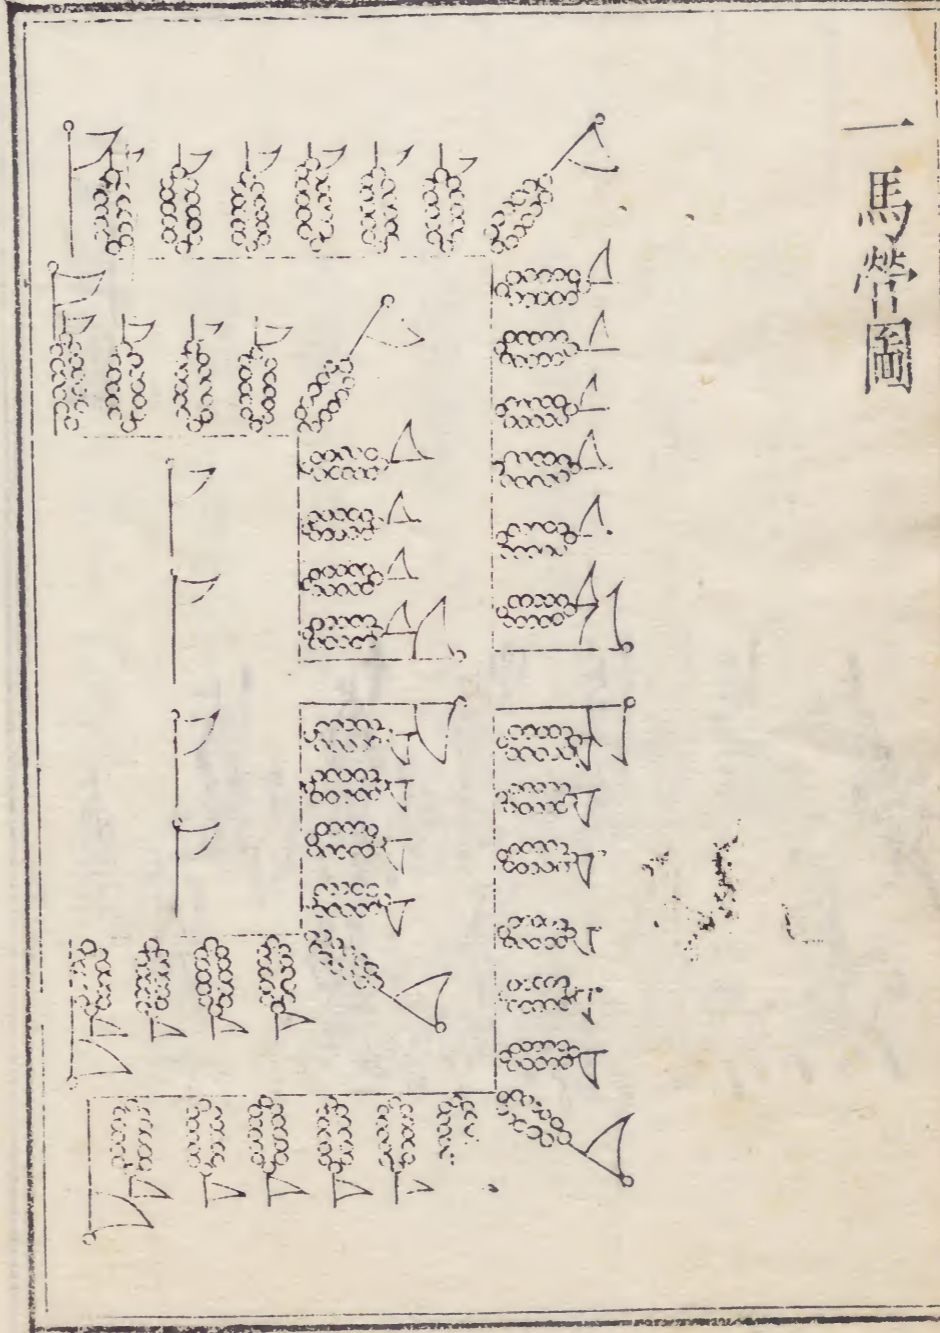 一馬營圖